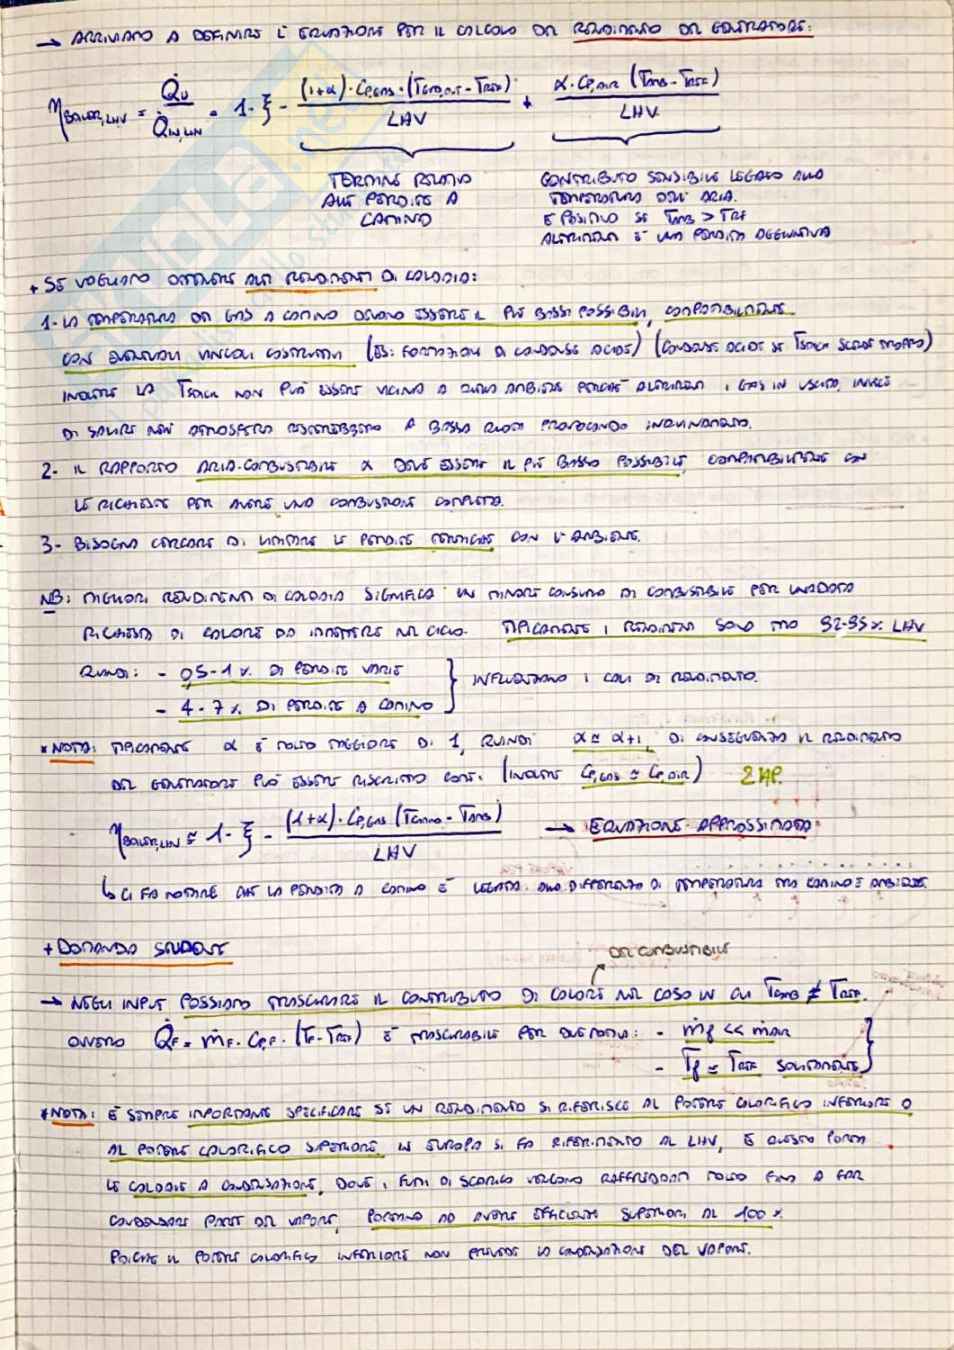 → ARRIVIAMO A DEFINIRE L'EQUAZIONE PER IL CALCOLO DEL RENDIMENTO DEL GENERATORE:
η BOILER,LHV = Q̇u / Q̇IN,LHV = 1 - ξ - (1+α)·Cp,GAS·(TGAS,OUT - TREF) / LHV + α·Cp,AIR (TAMB - TREF) / LHV
TERMINE RELATIVO ALLE PERDITE A CAMINO
CONTRIBUTO SENSIBILE LEGATO ALLA TEMPERATURA DELL'ARIA.
È POSITIVO SE TAMB > TREF
ALTRIMENTI È UNA PERDITA AGGIUNTIVA
+ SE VOGLIAMO OTTENERE ALTI RENDIMENTI DI CALDAIA:
1- LA TEMPERATURA DEI GAS A CAMINO DEVONO ESSERE IL PIÙ BASSI POSSIBILI, COMPATIBILMENTE
CON EVENTUALI VINCOLI COSTRUTTIVI (ES: FORMAZIONE DI CONDENSE ACIDE) (CONDENSE ACIDE SE TSTACK SCENDE TROPPO)
INOLTRE LA TSTACK NON PUÒ ESSERE VICINA A QUELLA AMBIENTE PERCHÉ ALTRIMENTI I GAS IN USCITA, INVECE
DI SALIRE NELL'ATMOSFERA RESTEREBBERO A BASSA QUOTA PROVOCANDO INQUINAMENTO.
2- IL RAPPORTO ARIA-COMBUSTIBILE α DEVE ESSERE IL PIÙ BASSO POSSIBILE, COMPATIBILMENTE CON
LE RICHIESTE PER AVERE UNA COMBUSTIONE COMPLETA.
3- BISOGNA CERCARE DI LIMITARE LE PERDITE TERMICHE CON L'AMBIENTE.
NB: MIGLIORI RENDIMENTI DI CALDAIA SIGNIFICA UN MINORE CONSUMO DI COMBUSTIBILE PER UNA DATA
RICHIESTA DI CALORE DA IMMETTERE NEL CICLO. TIPICAMENTE I RENDIMENTI SONO TRA 92-95% LHV
QUINDI: - 0,5-1% DI PERDITE VARIE
- 4-7% DI PERDITE A CAMINO
INFLUENZANO I CALI DI RENDIMENTO.
*NOTA: TIPICAMENTE α È MOLTO MAGGIORE DI 1, QUINDI α ≅ α+1. DI CONSEGUENZA IL RENDIMENTO
DEL GENERATORE PUÒ ESSERE RISCRITTO COME: (INOLTRE Cp,GAS ≅ Cp,AIR) 2 HP.
η BOILER,LHV ≅ 1 - ξ - (1+α)·Cp,GAS (TCAMINO - TAMB) / LHV → EQUAZIONE APPROSSIMATA
↳ CI FA NOTARE CHE LA PERDITA A CAMINO È LEGATA ALLA DIFFERENZA DI TEMPERATURA TRA CAMINO E AMBIENTE.
+ DOMANDA STUDENTE
DEL COMBUSTIBILE
→ NEGLI INPUT POSSIAMO TRASCURARE IL CONTRIBUTO DI CALORE NEL CASO IN CUI TAMB ≠ TREF.
OVVERO Q̇F = ṁF · Cp,F · (TF - TREF) È TRASCURABILE PER DUE MOTIVI: - ṁf << ṁAIR
- Tf ≅ TREF SOLITAMENTE
*NOTA: È SEMPRE IMPORTANTE SPECIFICARE SE UN RENDIMENTO SI RIFERISCE AL POTERE CALORIFICO INFERIORE O
AL POTERE CALORIFICO SUPERIORE. IN EUROPA SI FA RIFERIMENTO AL LHV, E QUESTO PORTA
LE CALDAIE A CONDENSAZIONE, DOVE I FUMI DI SCARICO VENGONO RAFFREDDATI MOLTO FINO A FAR
CONDENSARE PARTE DEL VAPORE, PORTANO AD AVERE EFFICIENZE SUPERIORI AL 100%.
POICHÉ IL POTERE CALORIFICO INFERIORE NON PREVEDE LA CONDENSAZIONE DEL VAPORE.